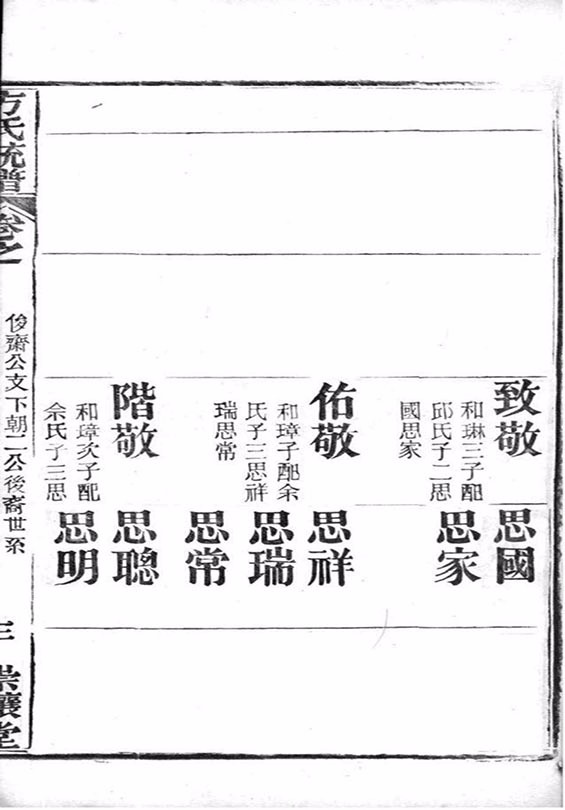 致敬
和琳三子配
邱氏子二思
國思家
思國
思家
佑敬
和璋子配余
氏子三思祥
瑞思常
思祥
思瑞
思常
階敬
和璋次子配
余氏子三思
思聰
思明
方氏統譜
卷之
俊齋公文下朝二公後裔世系
三
崇讓堂